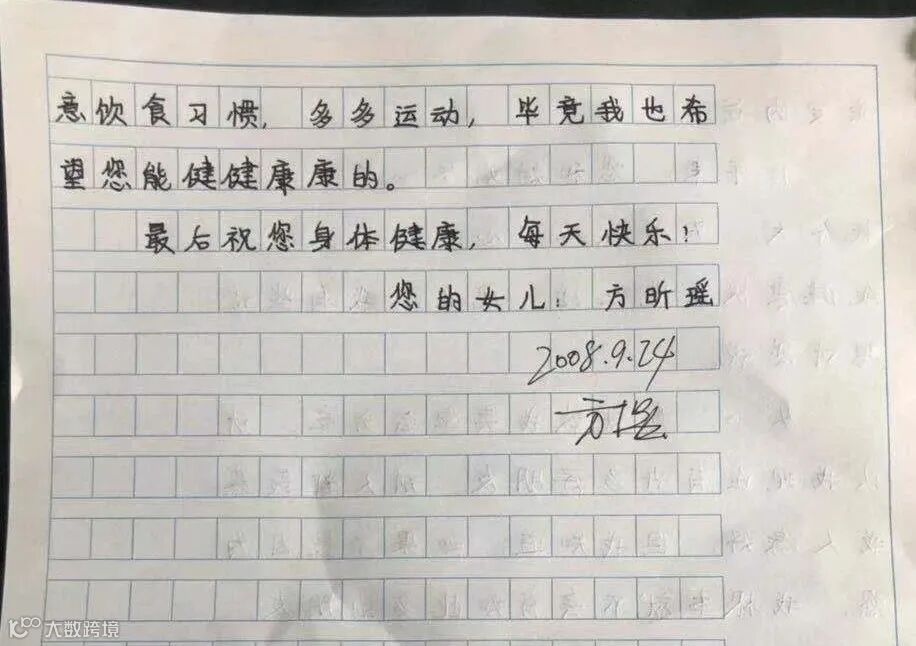 意饮食习惯，多多运动，毕竟我也希
望您能健健康康的。
最后祝您身体健康，每天快乐！
您的女儿：方昕瑶
2008.9.24
大数跨境